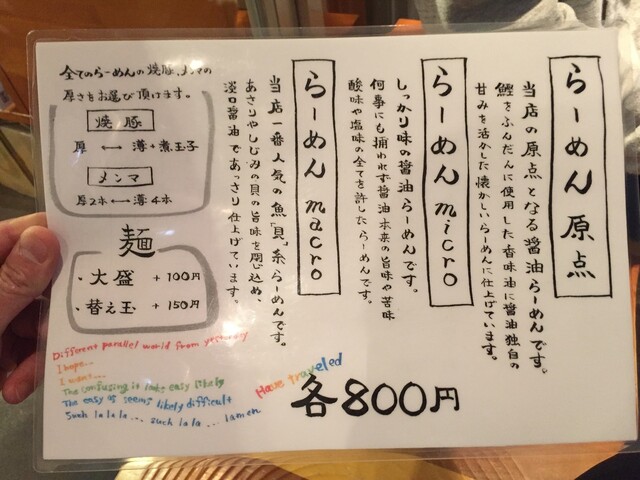 らーめん 原点
当店の原点となる醤油らーめんです。
鰹をふんだんに使用した香味油に醤油独自の
甘みを活かした懐かしいらーめんに仕上げています。
らーめん micro
しっかり味の醤油らーめんです。
何事にも捕われず醤油本来の旨味や苦味
酸味や塩味の全てを許したらーめんです。
らーめん macro
当店一番人気の魚「貝」系らーめんです。
あさりやしじみの貝の旨味を閉じ込め、
淡口醤油であっさり仕上げています。
各800円
全てのらーめんの焼豚、メンマの
厚さをお選び頂けます。
焼豚
厚 ↔ 薄+煮玉子
メンマ
厚2本 ↔ 薄4本
麺
・大盛 +100円
・替え玉 +150円
Different parallel world from yesterday
I hope...
I want...
The confusing is looks easy likely
The easy is seems likely difficult
Such lalala... such lala... lamen
Have traveled